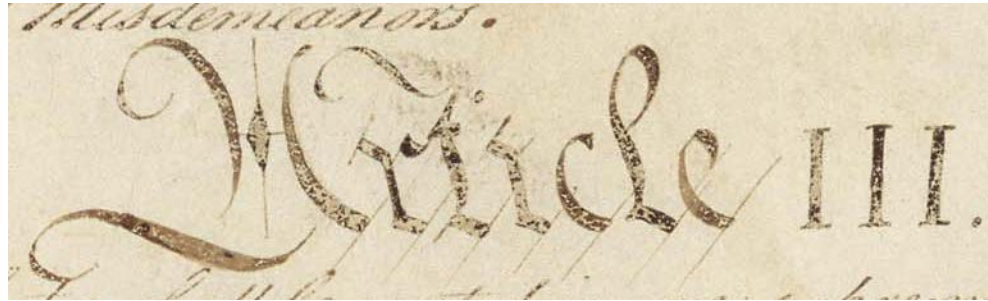 Misdemeanors.
Article III.